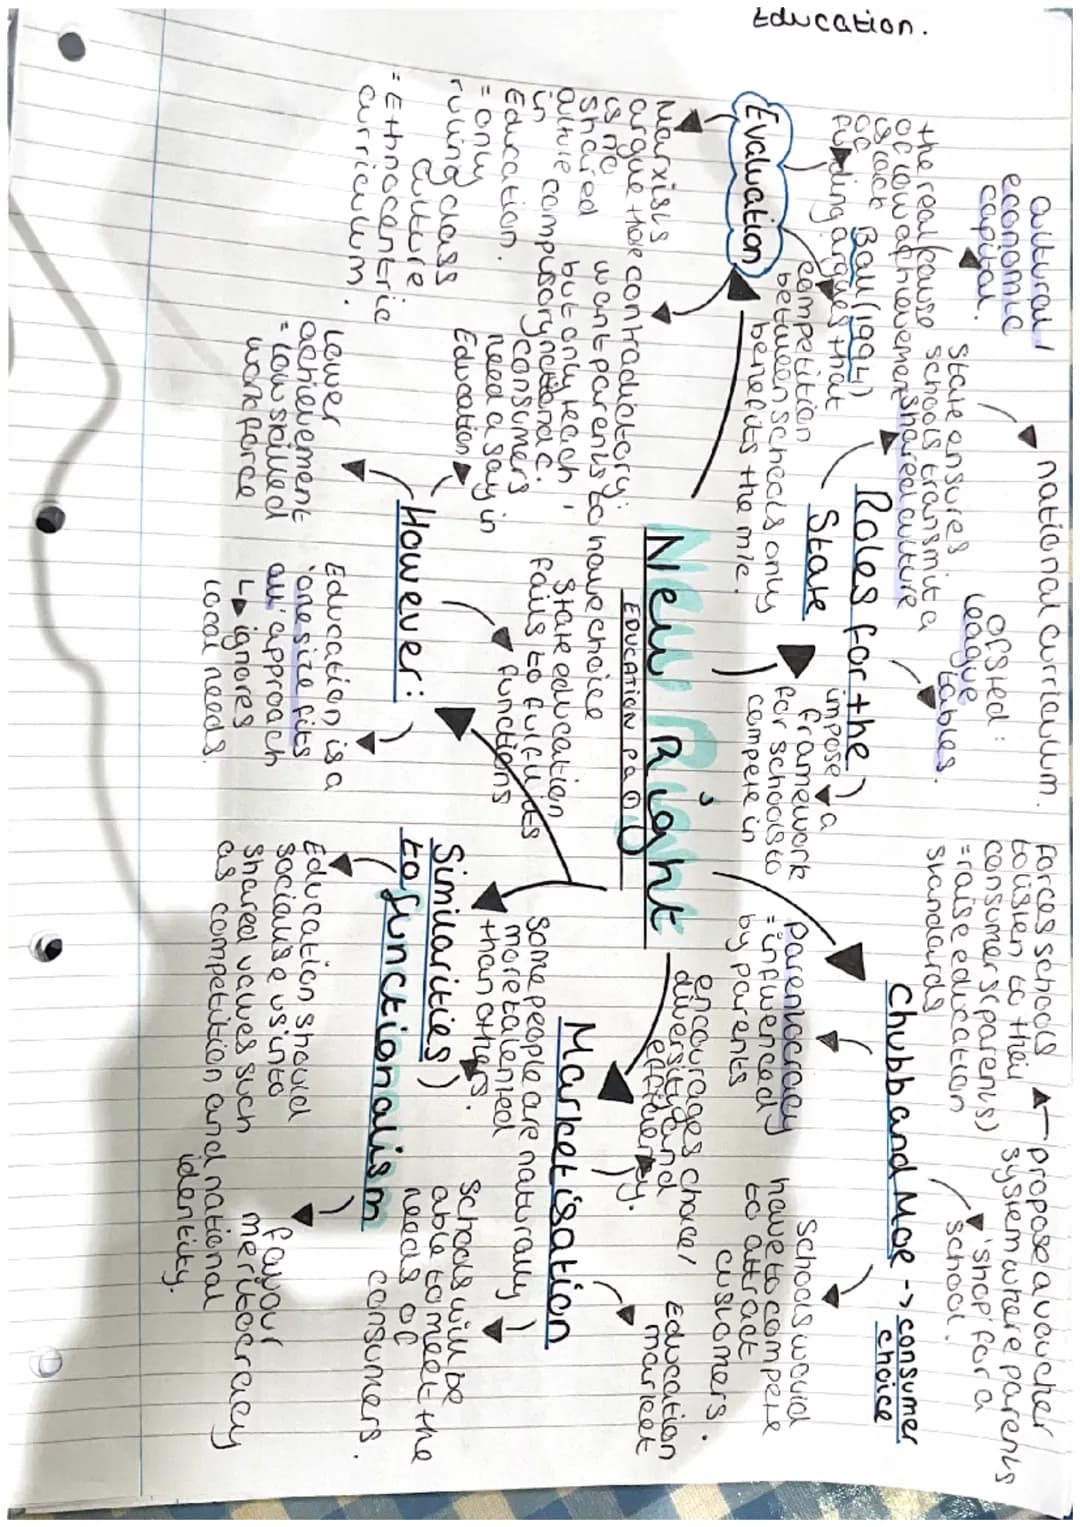 Education.
New Right
EDUCATION Pg 10
Evaluation
Marxists
argue there
is no
shared
culture
in
Education.
= only
ruling class
culture
= Ethnocentric
curriculum.
contradictory:
want parents to have choice
but only teach
compulsory national c.
Ball (1994)
argues that
competition
between schools only
benefits the m/c.
the real cause
of low achievement
is lack
of
funding
cultural/
economic
capital.
Roles for the
State
State ensures
schools transmit a
shared culture
national curriculum.
Ofsted:
league
tables.
impose a
framework
for schools to
compete in
Chubb and Moe -> consumer
choice
Parentocracy
= influenced
by parents
forces schools
to listen to their
consumers (parents)
= raise education
standards
propose a voucher
system where parents
'shop' for a
school.
Schools would
have to compete
to attract
customers.
Marketisation
encourages choice/
diversity and
efficiency.
Education
market
Schools will be
able to meet the
needs of
consumers.
Similarities
to functionalism
Some people are naturally
more talented
than others.
Education should
socialise us into
shared values such
as competition and national
identity.
favour
meritocracy
However:
State education
fails to fulfil its
functions
consumers
need a say in
Education
lower
achievement
= low skilled
work force
Education is a
'one size fits
all' approach
ignores
local needs.